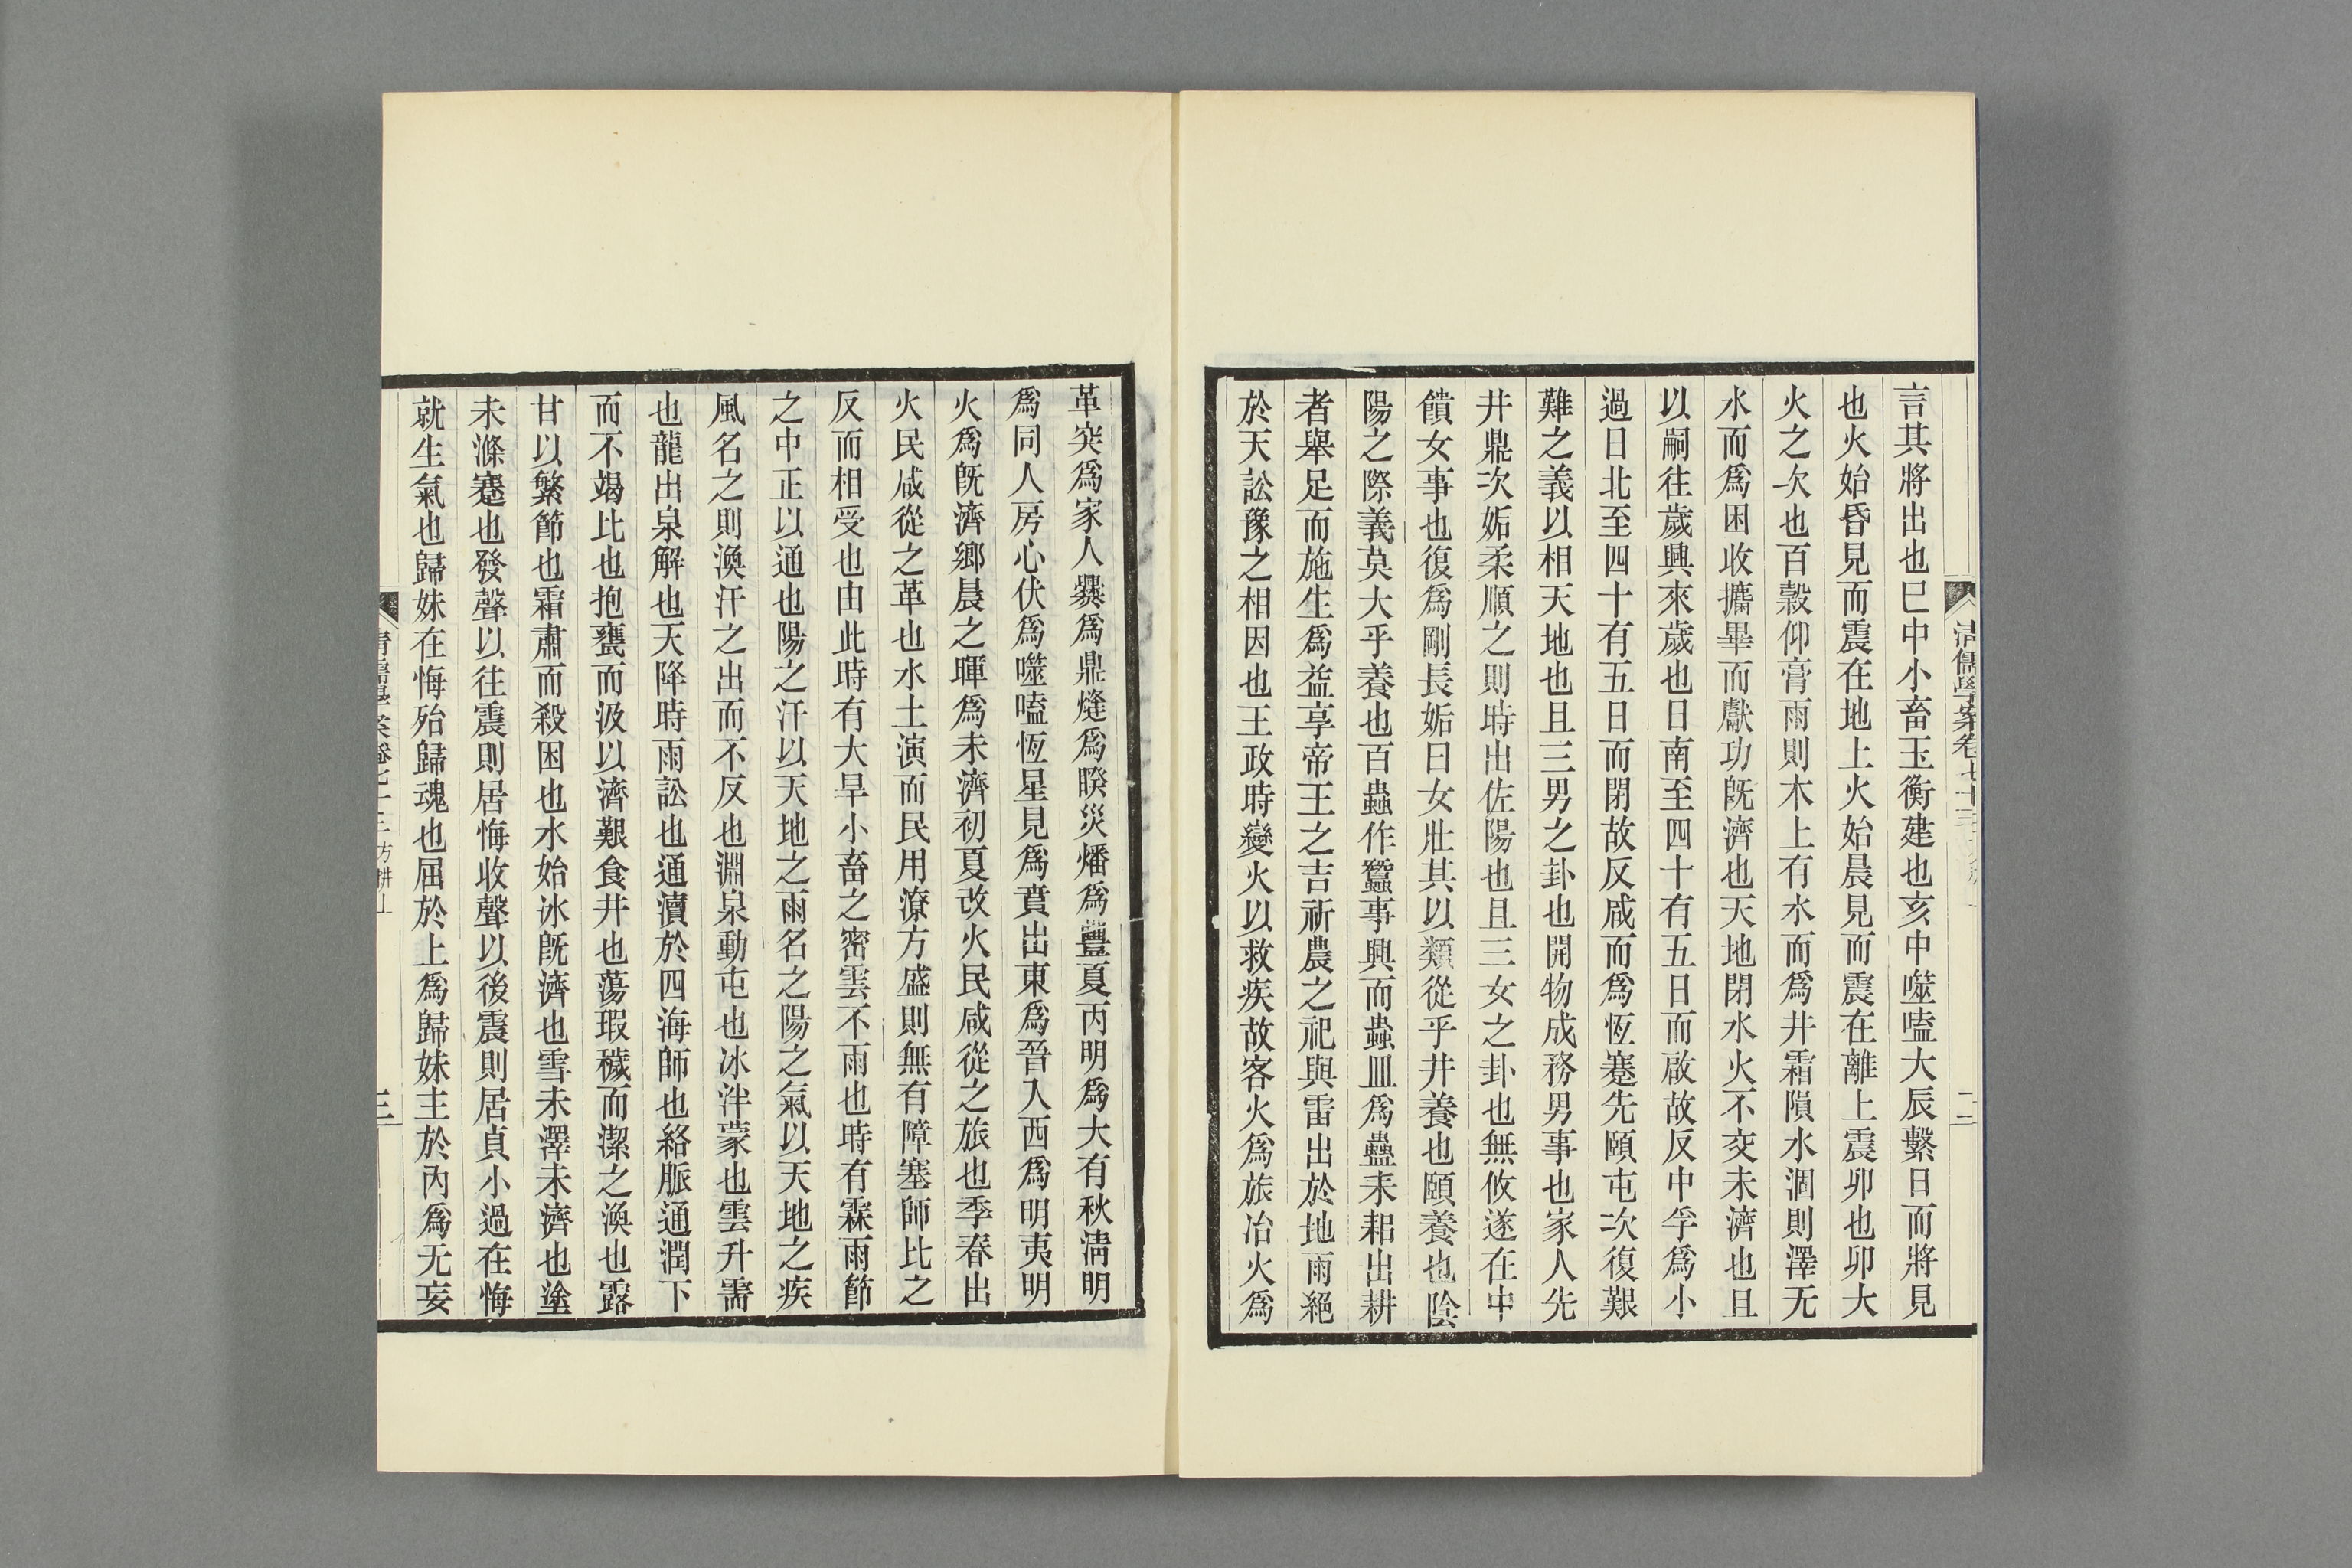 言其將出也巳中小畜玉衡建也亥中噬嗑大辰繫日而將見
也火始昏見而震在地上火始晨見而震在離上震卯也卯大
火之次也百穀仰膏雨則木上有水而爲井霜隕水涸則澤无
水而爲困收擕畢而獻功旣濟也天地閉水火不交未濟也且
以嗣往歲興來歲也日南至四十有五日而啟故反中孚爲小
過日北至四十有五日而閉故反咸而爲恆蹇先頤屯次復艱
難之義以相天地也且三男之卦也開物成務男事也家人先
井鼎次姤柔順之則時出佐陽也且三女之卦也無攸遂在中
饋女事也復爲剛長姤曰女壯其以類從乎井養也頤養也陰
陽之際義莫大乎養也百蟲作蠶事興而蟲皿爲蠱耒耜出耕
者舉足而施生爲益享帝王之吉祈農之祀與雷出於地雨絕
於天訟豫之相因也王政時變火以救疾故客火爲旅冶火爲
革突爲家人爨爲鼎熢爲睽災燔爲豐夏丙明爲大有秋淸明
爲同人房心伏爲噬嗑恆星見爲賁出東爲晉入西爲明夷明
火爲旣濟鄉晨之暉爲未濟初夏改火民咸從之旅也季春出
火民咸從之革也水土演而民用潦方盛則無有障塞師比之
反而相受也由此時有大旱小畜之密雲不雨也時有霖雨節
之中正以通也陽之汗以天地之雨名之陽之氣以天地之疾
風名之則渙汗之出而不反也淵泉動屯也冰泮蒙也雲升需
也龍出泉解也天降時雨訟也通瀆於四海師也絡脈通潤下
而不竭比也抱甕而汲以濟艱食井也蕩瑕穢而潔之渙也露
甘以繁節也霜肅而殺困也水始冰旣濟也雪未澤未濟也塗
未滌蹇也發聲以往震則居悔收聲以後震則居貞小過在悔
就生氣也歸妹在悔殆歸魂也屈於上爲歸妹主於內爲无妄
淸儒學案卷七十三
二
三